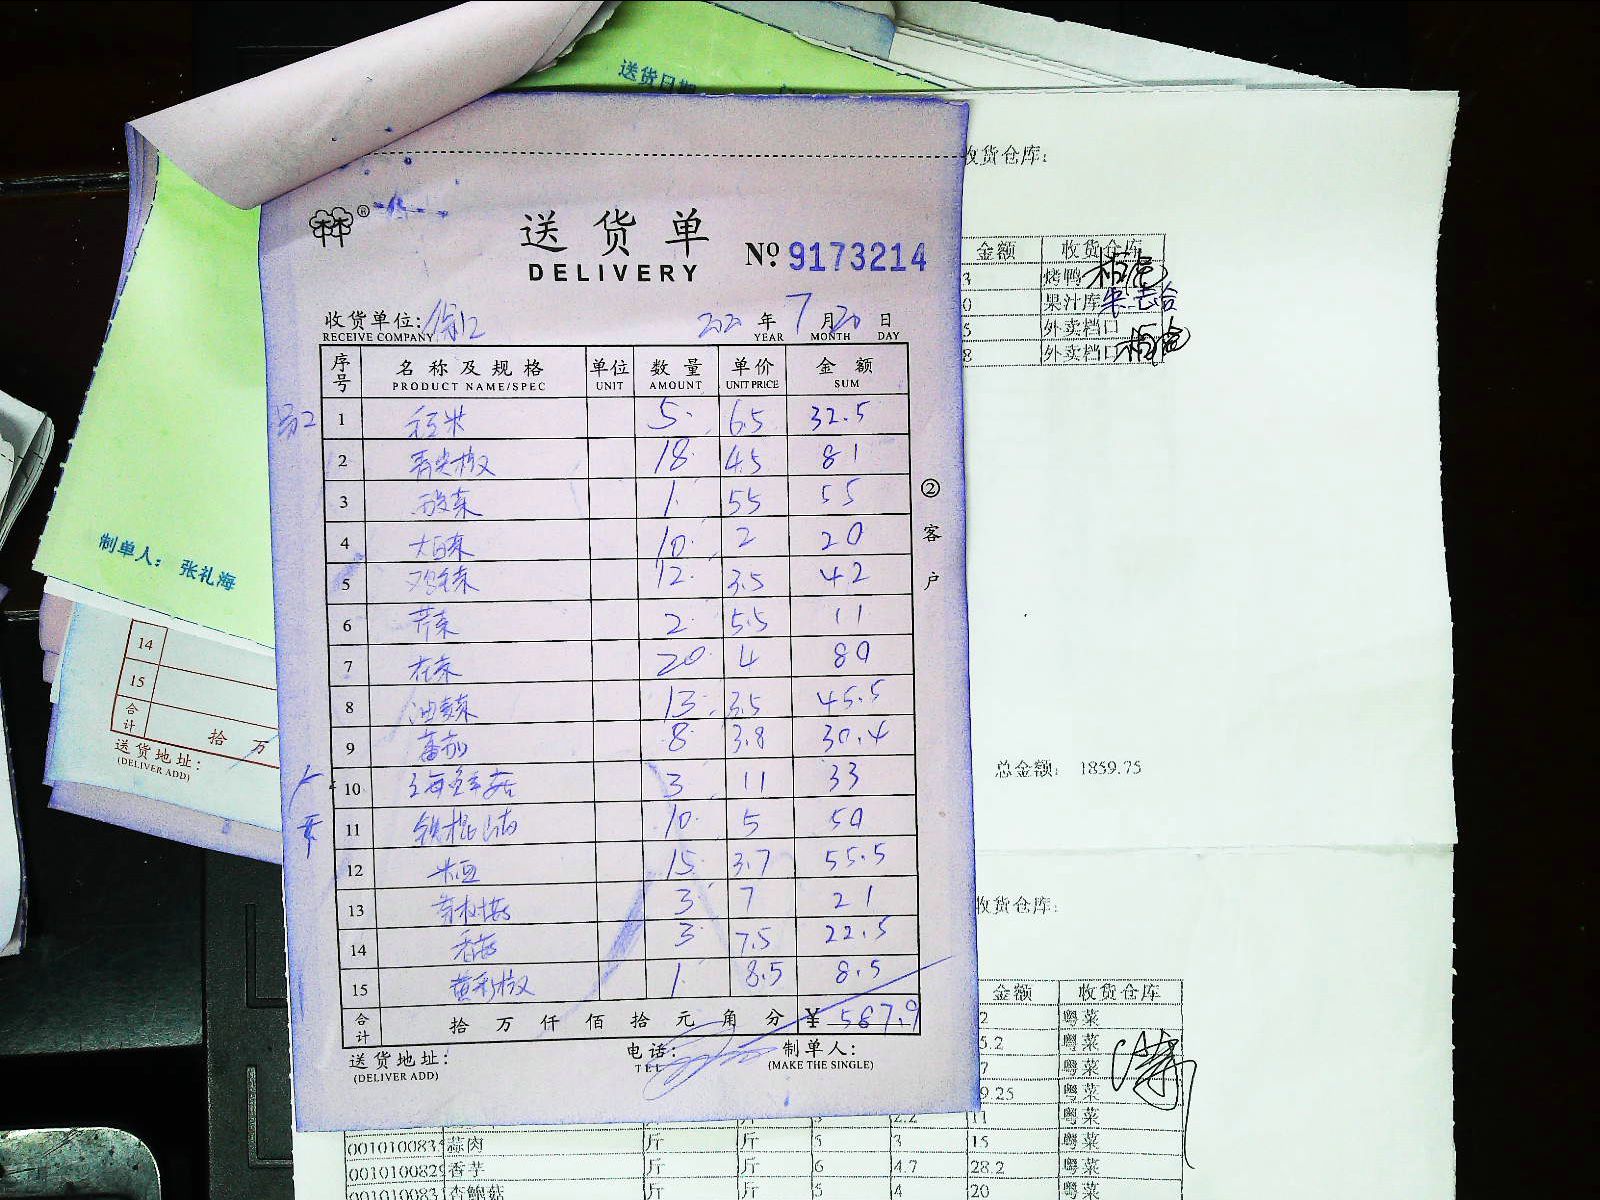 送货日期
收货仓库：
送货单
DELIVERY
№ 9173214
收货单位：
RECEIVE COMPANY
年 7 月 20 日
YEAR MONTH DAY
序号 名称及规格 单位 数量 单价 金额
PRODUCT NAME/SPEC UNIT AMOUNT UNIT PRICE SUM
1 5 6.5 32.5
2 青尖椒 18 4.5 81
3 酸菜 1 55 55
4 大白菜 10 2 20
5 12 3.5 42
6 芹菜 2 5.5 11
7 20 4 80
8 油麦菜 13 3.5 45.5
9 蕃茄 8 3.8 30.4
10 海鲜菇 3 11 33
11 铁棍山药 10 5 50
12 15 3.7 55.5
13 3 7 21
14 香菇 3 7.5 22.5
15 黄彩椒 1 8.5 8.5
合计 拾 万 仟 佰 拾 元 角 分 ¥ 587.9
送货地址： 电话： 制单人：
(DELIVER ADD) TEL (MAKE THE SINGLE)
② 客户
金额 收货仓库
3 烤鸭
0 果汁库
5 外卖档口
8 外卖档口
制单人： 张礼海
14
15
合计 拾 万
送货地址：
(DELIVER ADD)
总金额： 1859.75
收货仓库：
金额 收货仓库
2 粤菜
5.2 粤菜
7 粤菜
9.25 粤菜
2.2 11 粤菜
001010083 蒜肉 斤 斤 5 3 15 粤菜
001010082 香芋 斤 斤 6 4.7 28.2 粤菜
001010083 杏鲍菇 斤 斤 5 4 20 粤菜